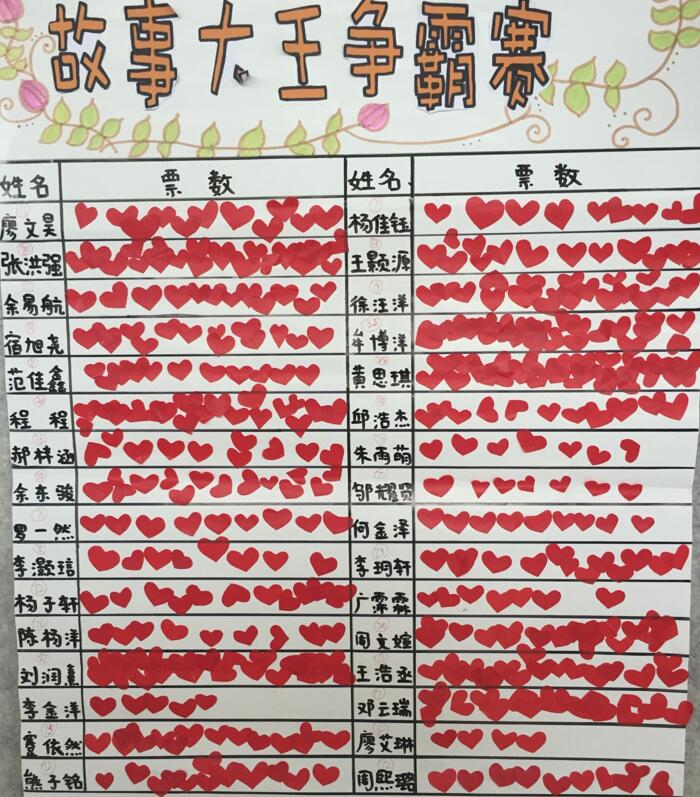 故事大王争霸赛
姓名 票数 姓名 票数
廖文昊 杨佳钰
张洪强 王颢源
余易航 徐汪洋
宿旭尧 牟博洋
范佳鑫 黄思琪
程程 邱浩杰
郝梓涵 朱雨萌
余东骏 邹耀贤
罗一然 何金泽
李灏琂 李玥轩
杨子轩 广霖霖
陈杨洋 周文媗
刘润熹 王浩丞
李金洋 邓云瑞
依然 廖艾琳
熊子铭 周熙璐